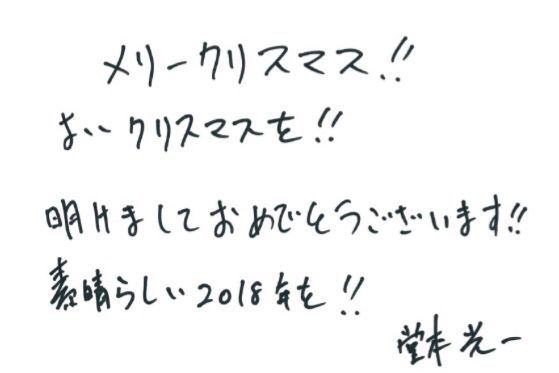 メリークリスマス!!
よいクリスマスを!!
明けましておめでとうございます!!
素晴らしい2018年を!!
堂本光一